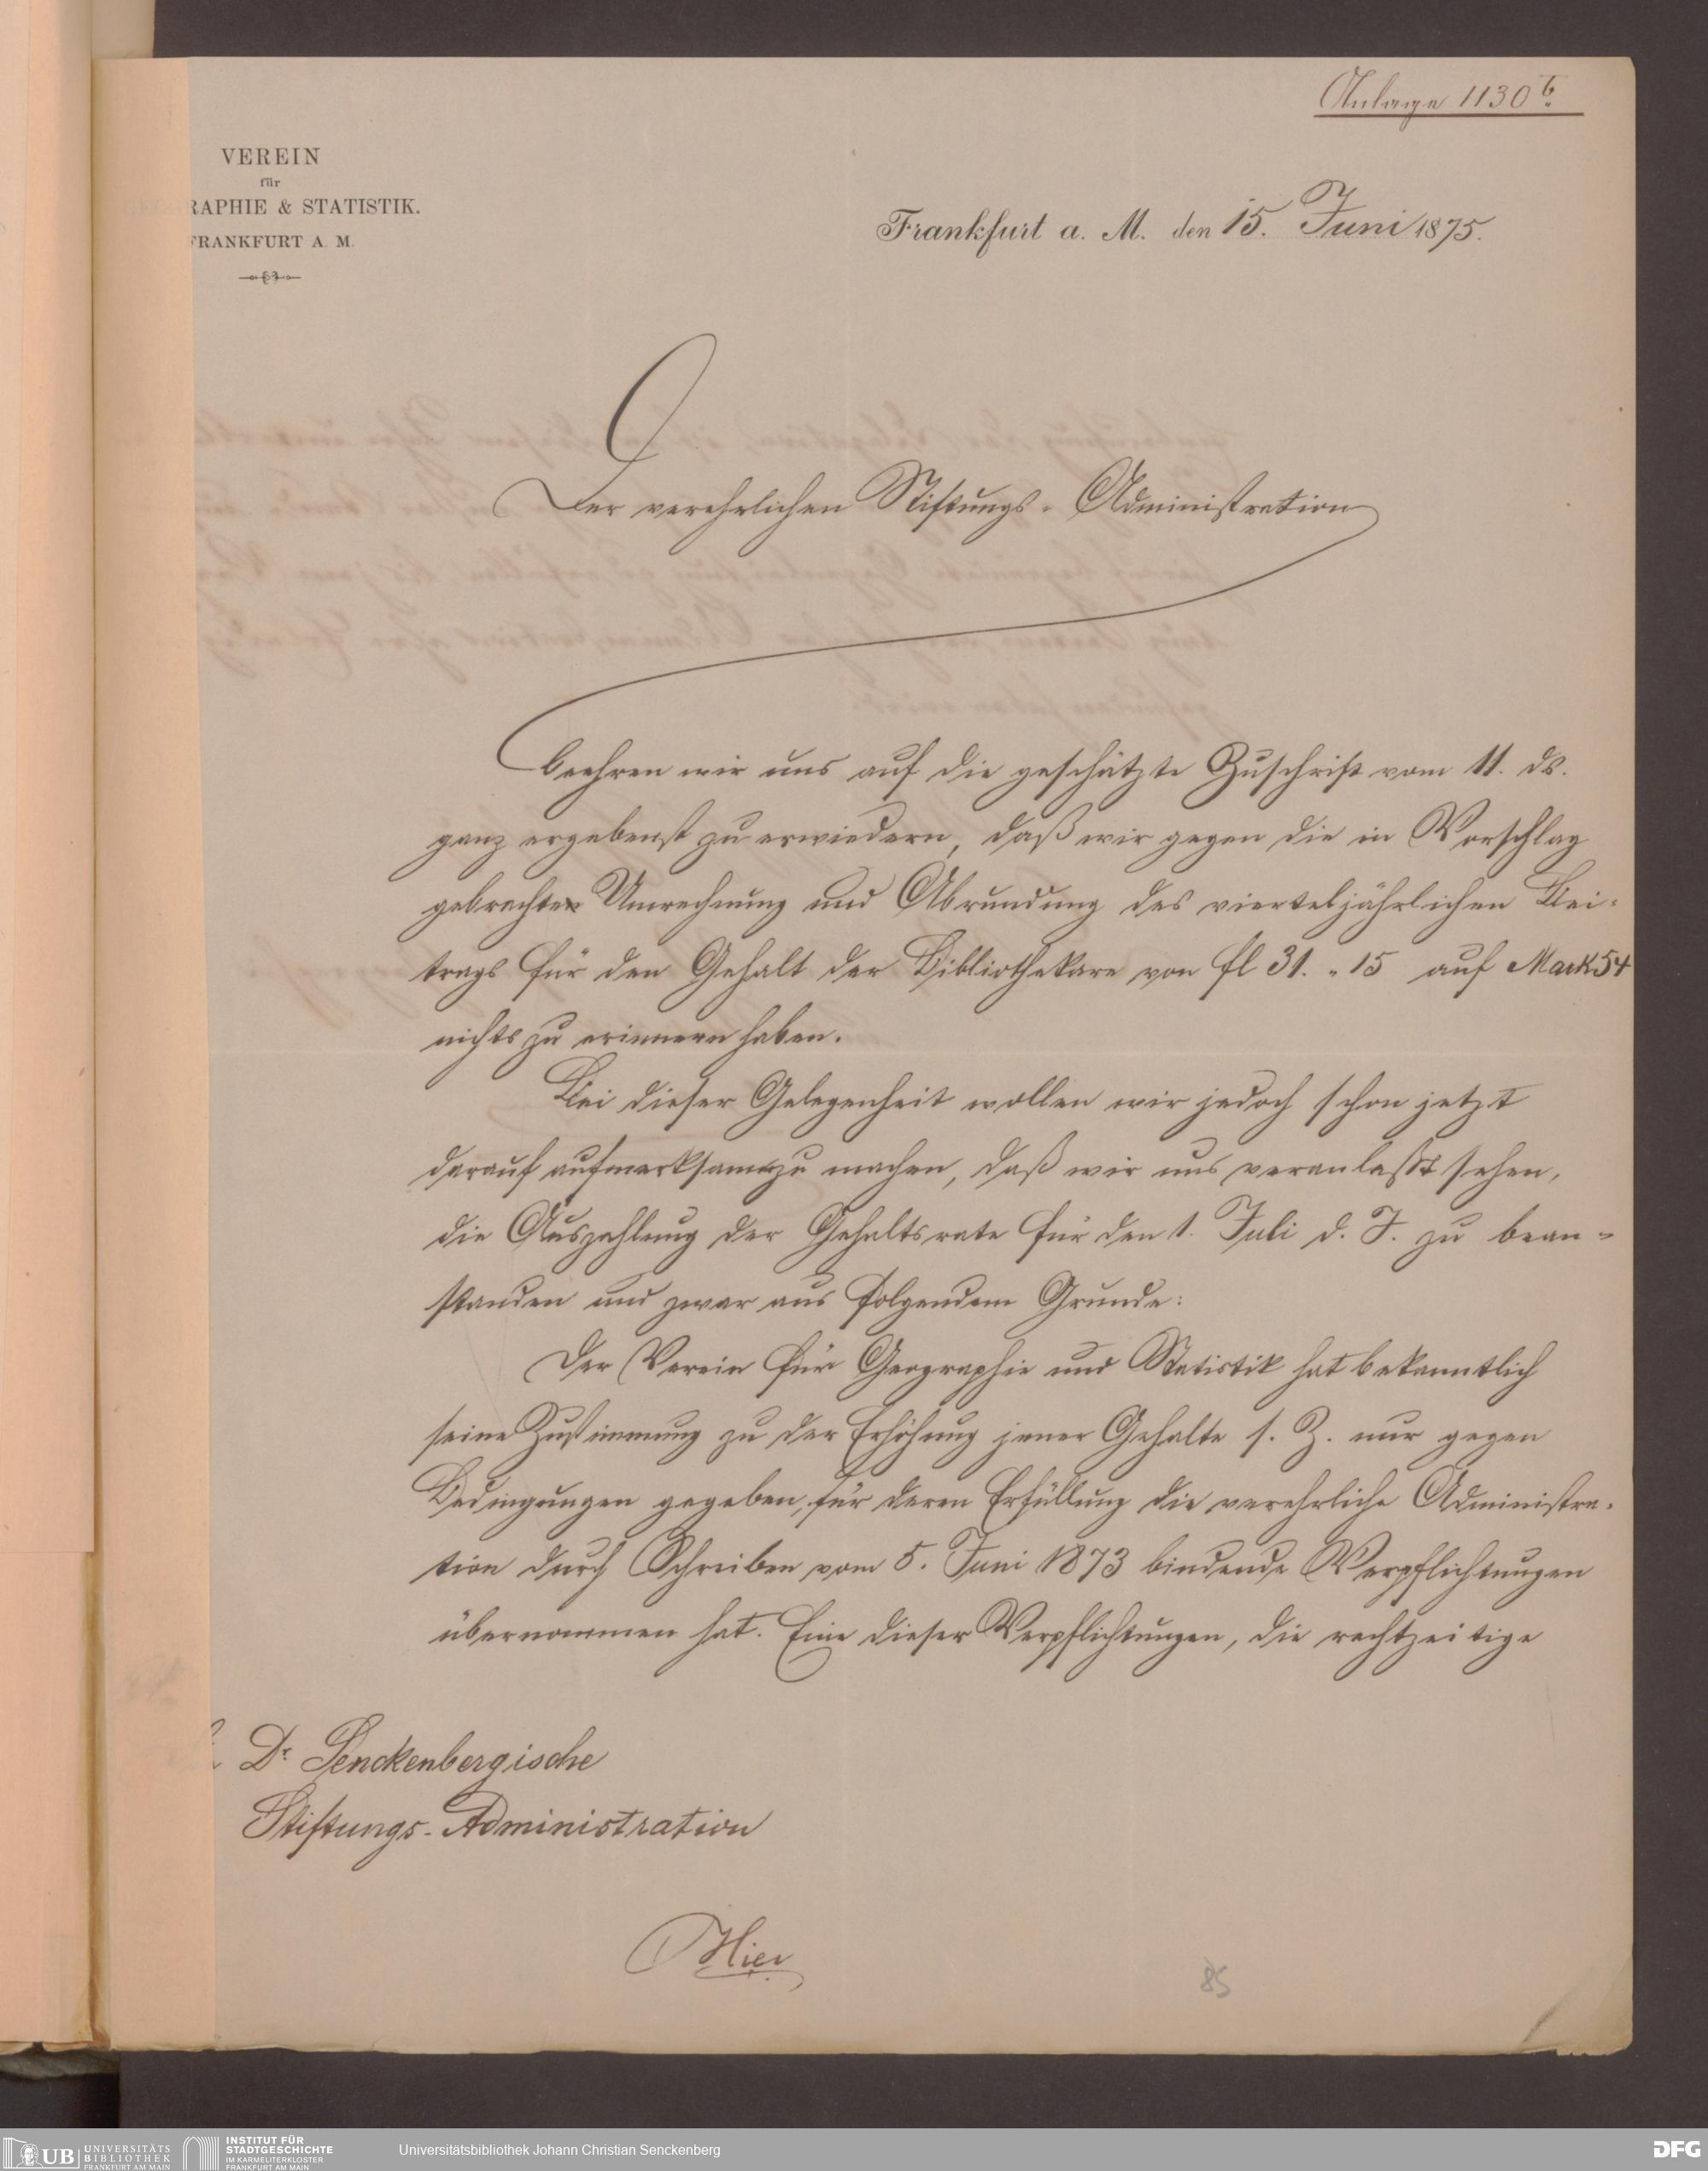 Anlage 1130 b.
VEREIN
für
GEOGRAPHIE & STATISTIK.
FRANKFURT A. M.
Frankfurt a. M. den 15. Juni 1875.
Der verehrlichen Stiftungs-Administration
beehren wir uns auf die geschätzte Zuschrift vom 11. ds.
ganz ergebenst zu erwiedern, daß wir gegen die in Vorschlag
gebrachte Umrechnung und Abrundung des vierteljährlichen Bei-
trags für den Gehalt der Bibliothekare von fl 31. „ 15 auf Mark 54
nichts zu erinnern haben.
Bei dieser Gelegenheit wollen wir jedoch schon jetzt
darauf aufmerksam zu machen, daß wir uns veranlaßt sehen,
die Auszahlung der Gehaltsrate für den 1. Juli d. J. zu bean-
standen und zwar aus folgendem Grunde:
Der Verein für Geographie und Statistik hat bekanntlich
seine Zustimmung zu der Erhöhung jener Gehalte s. Z. nur gegen
Bedingungen gegeben, für deren Erfüllung die verehrliche Administra-
tion durch Schreiben vom 5. Juni 1873 bindende Verpflichtungen
übernommen hat. Eine dieser Verpflichtungen, die rechtzeitige
Dr. Senckenbergische
Stiftungs-Administration
Hier
85
UB UNIVERSITÄTS
BIBLIOTHEK
FRANKFURT AM MAIN
INSTITUT FÜR
STADTGESCHICHTE
IM KARMELITERKLOSTER
FRANKFURT AM MAIN
Universitätsbibliothek Johann Christian Senckenberg
DFG